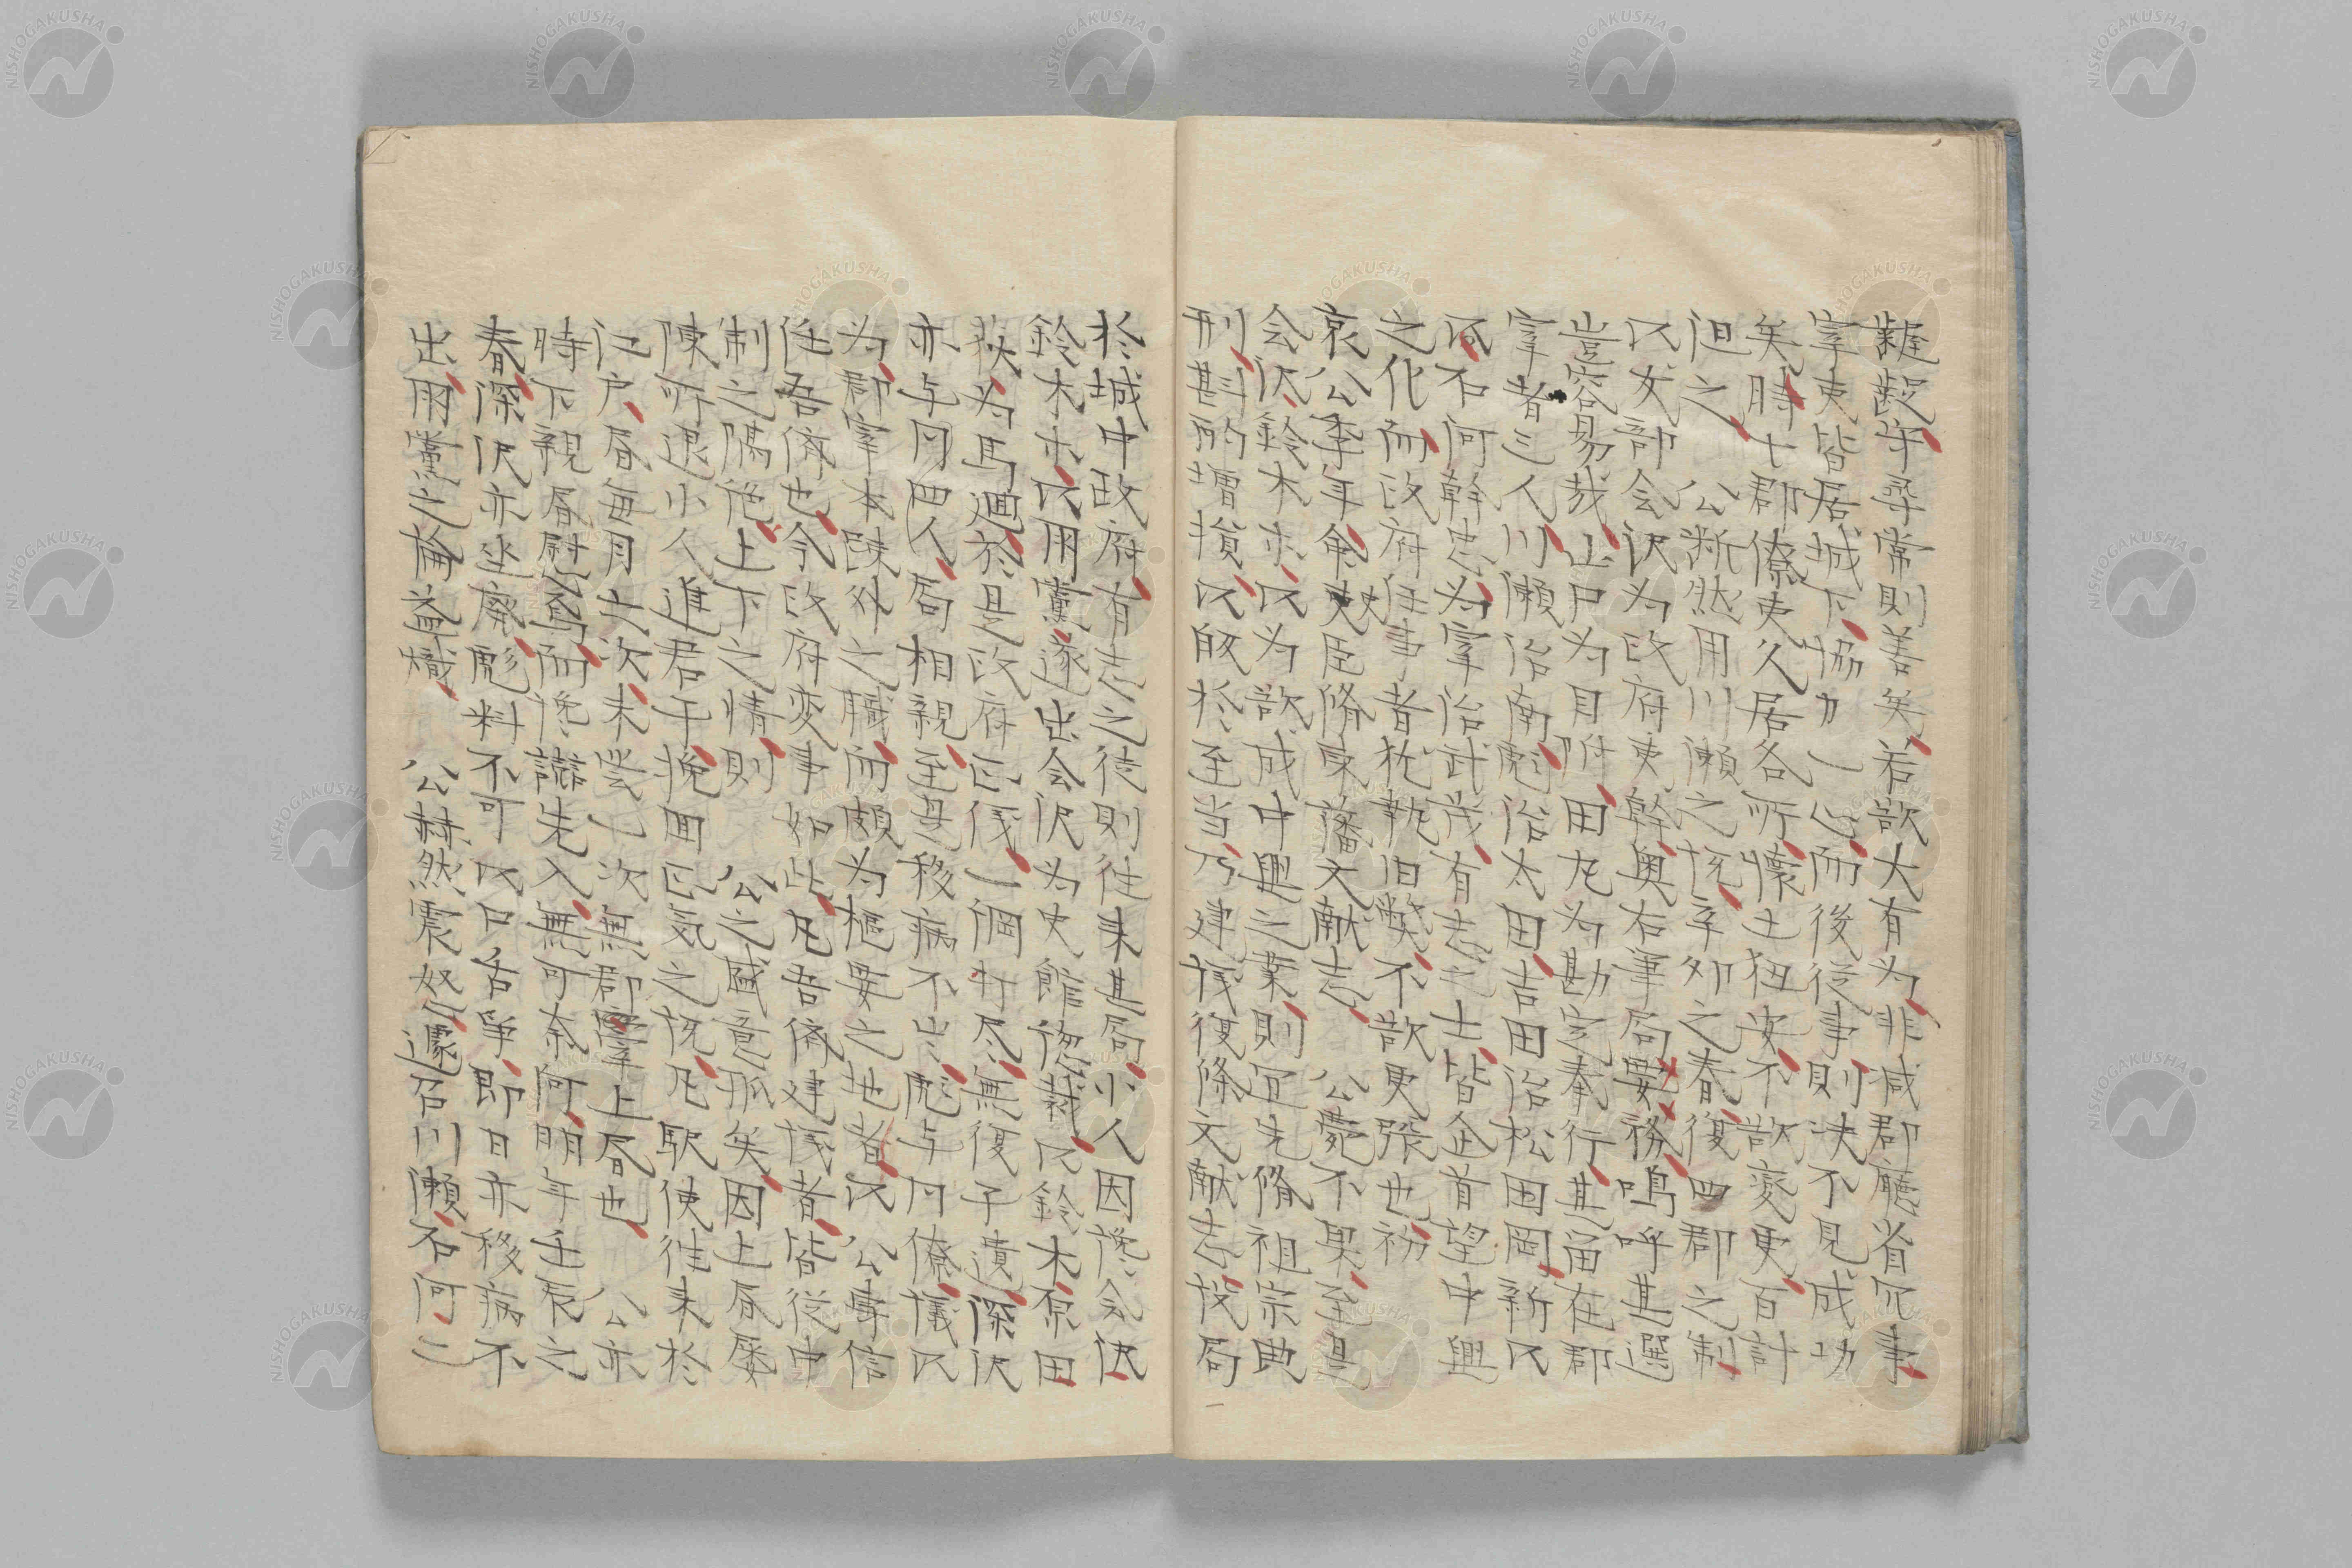 齷齪守尋常則善矣若欲大有為非減郡廳省冗事
宰吏皆居城下協力一心而後從事則决不見成功
矣時七郡僚吏久居各所懷土狃安不欲変更百計
沮之公断然用川瀬之議辛卯之春復四郡之制
以友部会沢為政府吏幹奥右筆局要務嗚呼其選
豈容易哉山戸為目附田丸為勘定奉行其留在郡
宰者三人川瀬治南彪治太田吉田治松岡新以
不何幹忠為宰治武茂有志之士皆企首望中興
之化而政府任事者猶執旧弊不欲更張也初
哀公季年命史臣脩東藩文献志公薨不果至是
会沢鈴木亦以為欲成中興之業則宜先脩祖宗典
刑斟酌増損以皈於至当乃建議復脩文献志設局
於城中政府有志之徒則往来其局小人因讒会沢
鈴木亦以朋黨遂出会沢為史館惣裁以鈴木原田
為馬廻於是政府正儀一網打尽無復孑遺深沢
亦与同四人局相親至是移病不出彪与同僚議以
為郡宰本踈外之職而頗為樞要之地者以公専信
任吾儕也今政府変事如此凡吾儕建議者皆從中
制之隔絶上下之情則公之盛意孤矣因上唇屡
陳所退小人進君子挽回正気之説凡駅使往来於
江戸唇毎月六次未嘗一次無郡宰上唇也公亦
時下親唇慰喻而讒譖先入無可奈何明年壬辰之
春深沢亦坐廃彪料不可以口舌争即日亦移病不
出朋黨之論益熾公赫然震怒遽召川瀬不何二